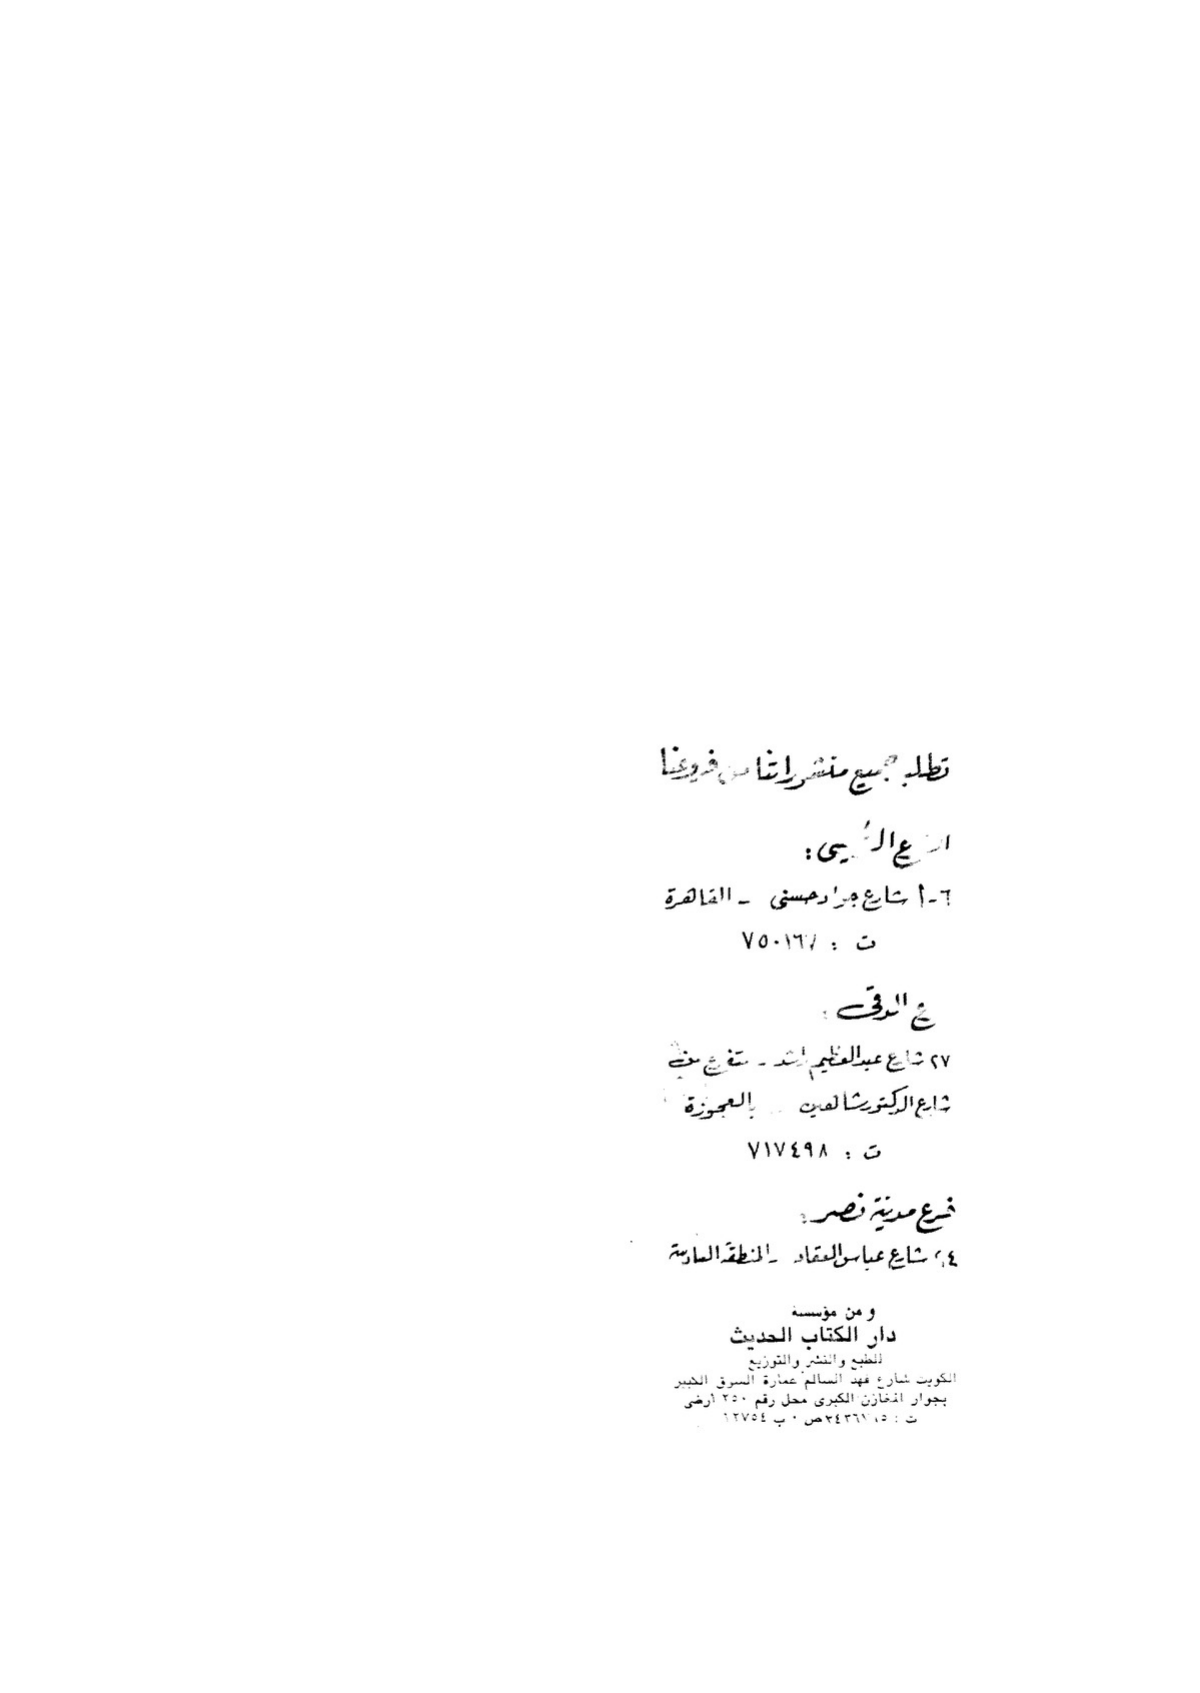 تطلب جميع منشوراتنا من فروعنا
الفرع الرئيسى :
٦-أ شارع جواد حسنى - القاهرة
ت : ٧٥٠١٦٧
ع الدقى :
٢٧ شارع عبدالعظيم راشد - متفرع من
شارع الدكتور شاهين بالعجوزة
ت : ٧١٧٤٩٨
فرع مدينة نصر :
شارع عباس العقاد - المنطقة السادسة
ومن مؤسسة
دار الكتاب الحديث
للطبع والنشر والتوزيع
الكويت شارع فهد السالم عمارة السوق الكبير
بجوار المخازن الكبرى محل رقم ٢٥٠ أرضى
ت : ص . ب ٦٢٧٥٤